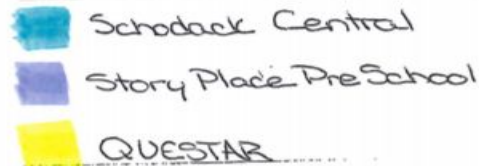 Schodack Central
Story Place PreSchool
QUESTAR